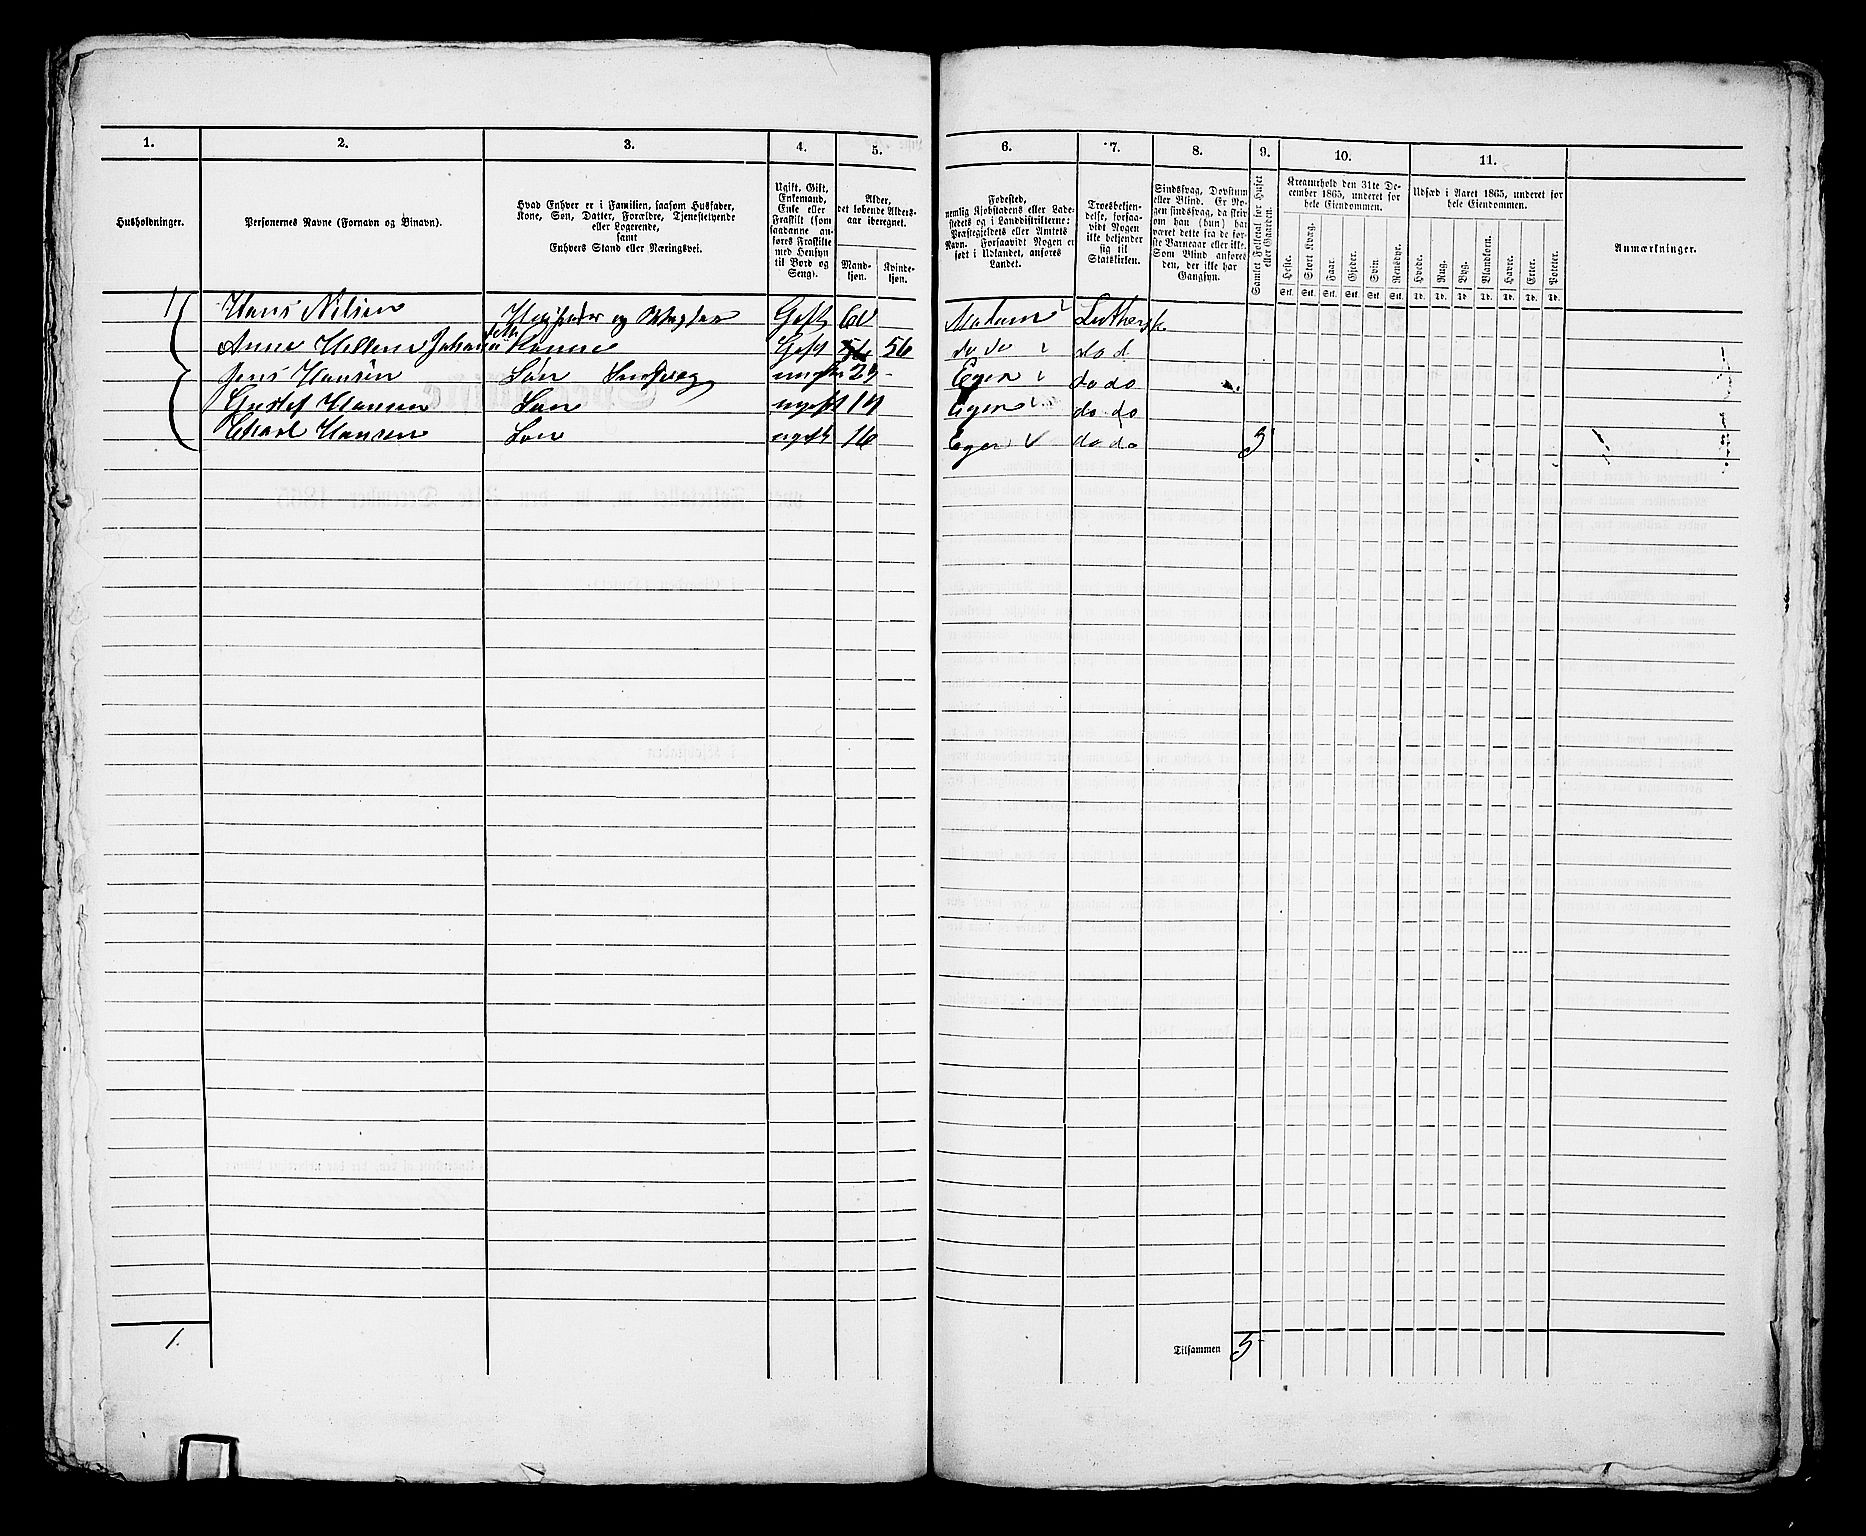 1. 2. 3. 4. 5.
Husholdninger.
Personernes Navne (Fornavn og Binavn).
Hvad Enhver er i Familien, saasom Husfader,
Kone, Søn, Datter, Forældre, Tjenestetyende
eller Logerende,
samt
Enhvers Stand eller Næringsvei.
Ugift, Gift,
Enkemand,
Enke eller
Fraskilt (som
saadanne an-
føres Fraskilte
med Hensyn
til Bord og
Seng).
Alder,
det løbende Alders-
aar iberegnet.
Mand-
kjøn.
Kvinde-
kjøn.
1 Hans Nilsen Husfader og Gift 60
Anne Hellene Johans datter Konne Gift 56
Jens Hansen Søn Sindsvag 29
Gustef Hansen Søn ugift 19
Charl Hansen Søn ugift 16
1.
6. 7. 8. 9. 10. 11.
Fødested,
nemlig Kjøbstadens eller Lade-
stedets og i Landdistrikterne:
Præstegjeldets eller Amtets
Navn. Forsaavidt Nogen er
født i Udlandet, anføres
Landet.
Troesbekjen-
delse, forsaa-
vidt Nogen
ikke bekjender
sig til
Statskirken.
Sindssvag, Døvstum
eller Blind. Er No-
gen sindssvag, da skriv
om han (hun) har
været dette fra de før-
ste Barneaar eller ikke.
Som Blind anføres
den, der ikke har
Gangsyn.
Samlet Folketal for Huset
eller Gaarden.
Kreaturhold den 31te De-
cember 1865, underet for
hele Eiendommen.
Heste. Stort Kvæg. Faar. Gjeder. Svin. Rensdyr.
Stk. Stk. Stk. Stk. Stk. Stk.
Udsæd i Aaret 1865, underet for
hele Eiendommen.
Hvede. Rug. Byg. Blandkorn. Havre. Erter. Poteter.
Td. Td. Td. Td. Td. Td. Td.
Anmærkninger.
Modum Luthersk
do do do d
Eger do do
Eger do do
Eger do do 5
Tilsammen 5